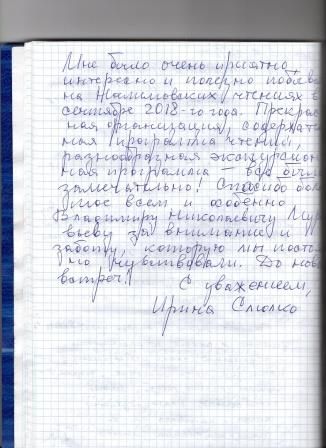 Мне было очень приятно
интересно и полезно побыва
на Нахимовских чтениях в
сентябре 2018-го года. Прекрас
ная организация, содержате
ная программа чтений,
разнообразная экскурсион
ная программа – всё было
замечательно! Спасибо бол
шое всем и особенно
Владимиру Николаевичу Мур
вьеву за внимание и
заботу, которую мы постоя
но чувствовали. До новы
встреч!
С уважением,
Ирина